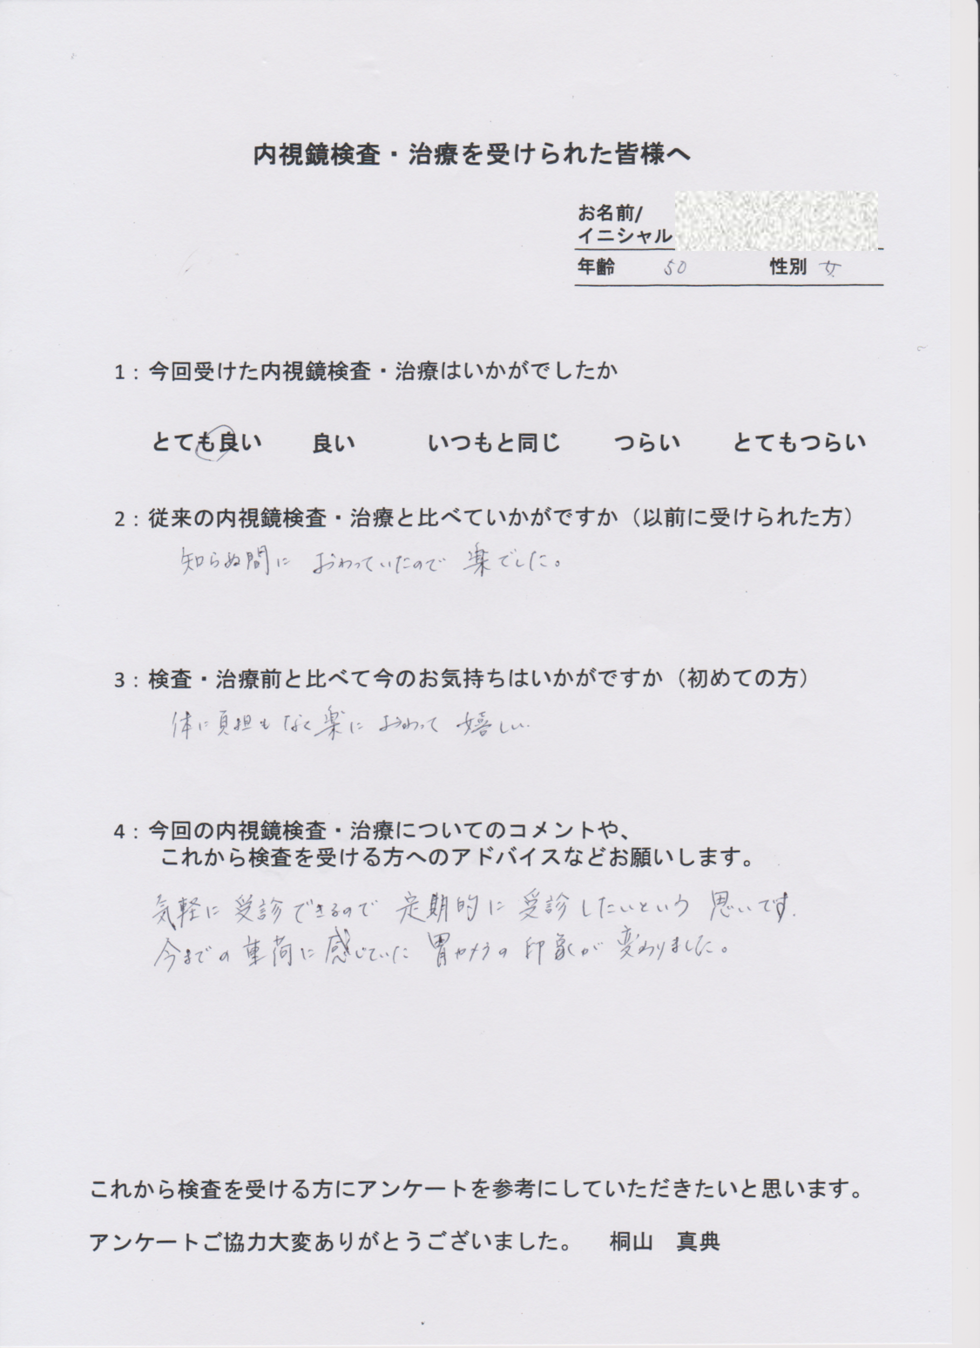 内視鏡検査・治療を受けられた皆様へ
お名前/
イニシャル
年齢 50 性別 女
1：今回受けた内視鏡検査・治療はいかがでしたか
とても良い 良い いつもと同じ つらい とてもつらい
2：従来の内視鏡検査・治療と比べていかがですか（以前に受けられた方）
知らぬ間に おわっていたので 楽でした。
3：検査・治療前と比べて今のお気持ちはいかがですか（初めての方）
体に負担もなく楽に おわって 嬉しい
4：今回の内視鏡検査・治療についてのコメントや、
これから検査を受ける方へのアドバイスなどお願いします。
気軽に 受診できるので 定期的に 受診したいという 思いです.
今までの 重荷に感じていた 胃カメラの 印象が 変わりました。
これから検査を受ける方にアンケートを参考にしていただきたいと思います。
アンケートご協力大変ありがとうございました。 桐山 真典